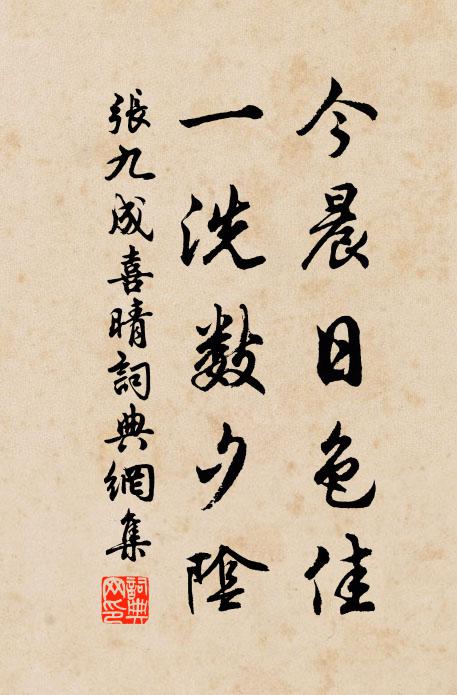 今晨日色佳
一洗數夕陰
張九成喜晴詞典網集
詞典網印